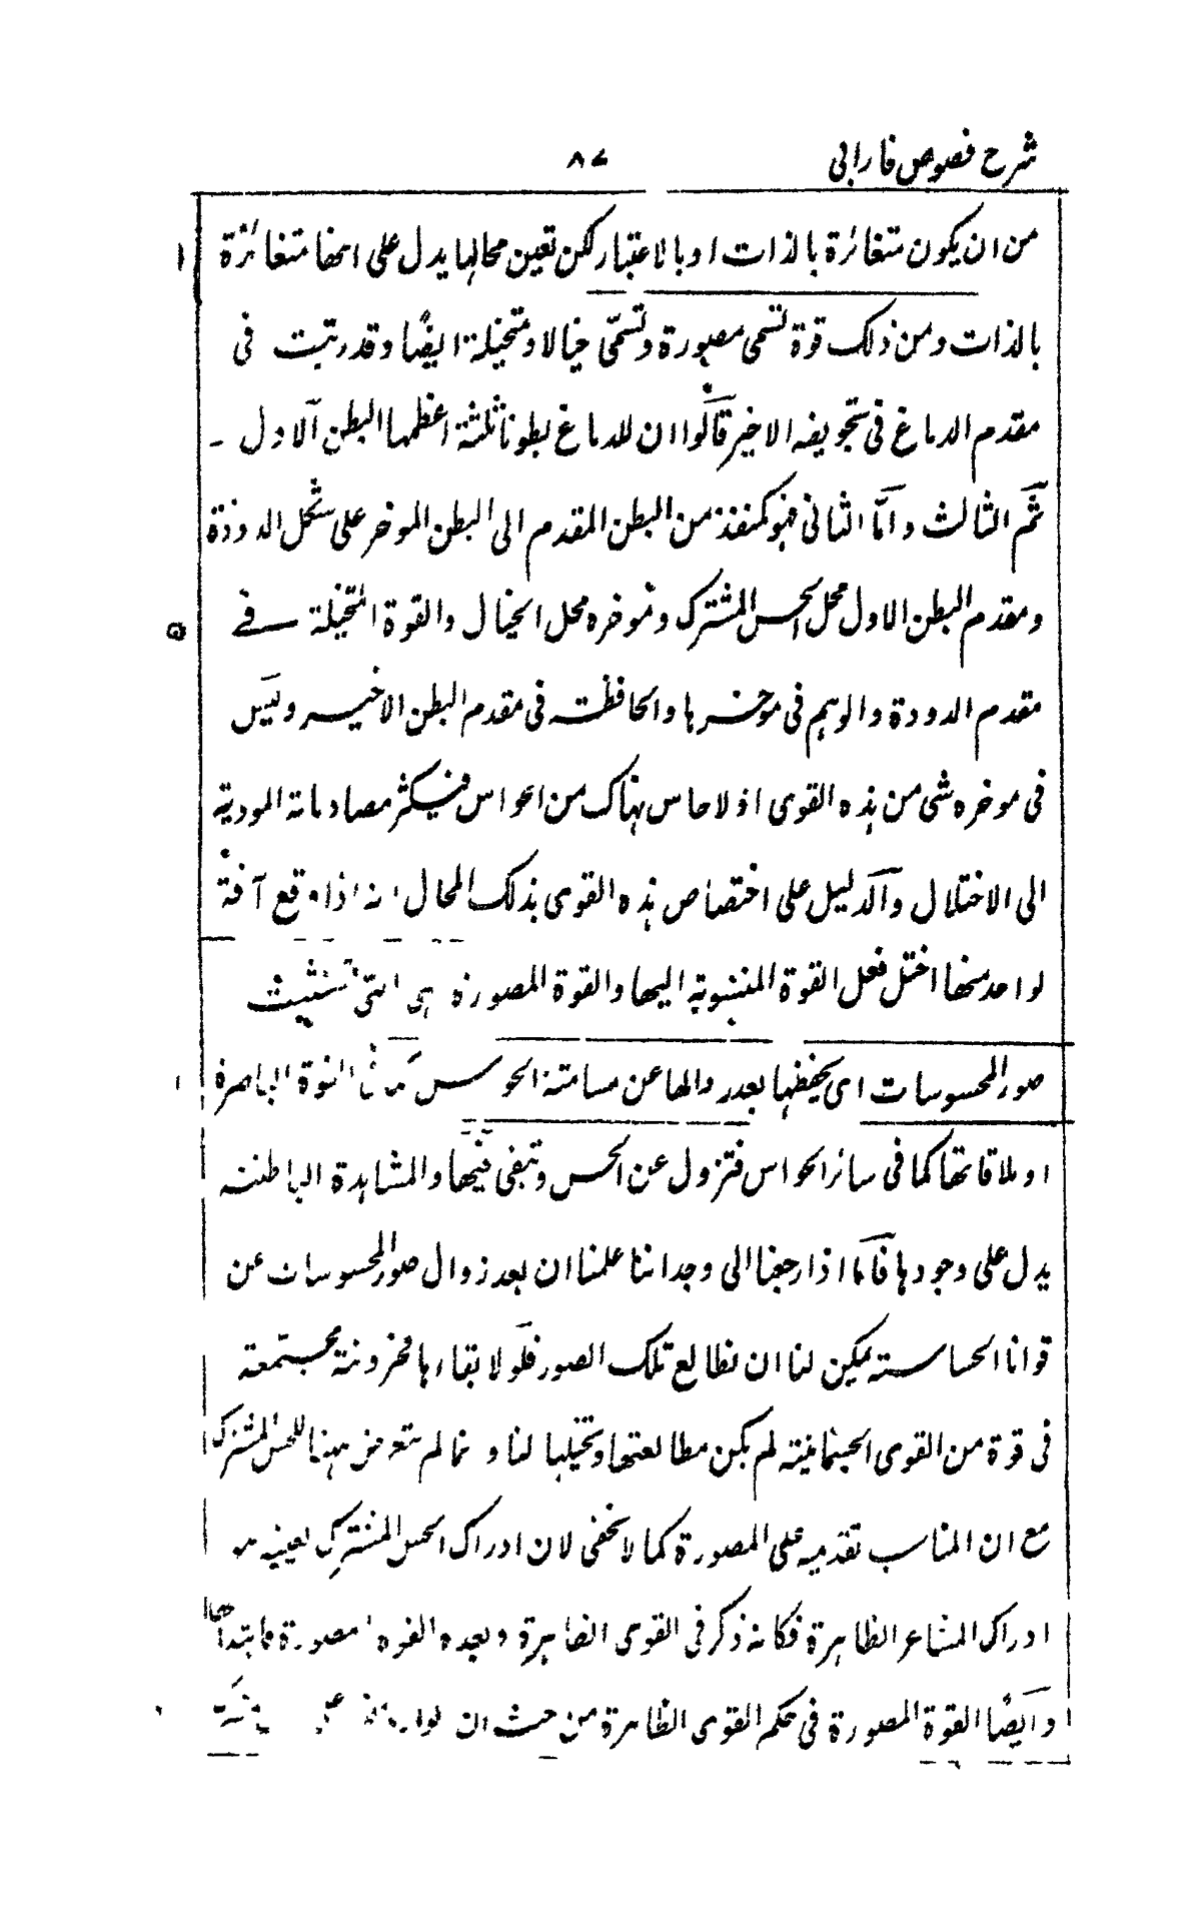 شرح فصوص فارابی ٨٧
من ان یکون متغائرة بالذات او بالاعتبار لکن تعین محالها یدل علی انها متغائرة
بالذات ومن ذلک قوة تسمی مصورة وتسمّی خیالا ومتخیلة ایضًا وقد رتبت فی
مقدم الدماغ فی تجویفه الاخیر قالوا ان للدماغ بطونا ثلثة اعظمها البطن الاول ـ
ثم الثالث وامّا الثانی فهو کمنفذ من البطن المقدم الی البطن الموخر علی شکل الدودة
ومقدم البطن الاول محل الحس المشترک وموخره محل الخیال والقوة المتخیلة فے
مقدم الدودة والوهم فی موخرها والحافظة فی مقدم البطن الاخیر ولیس
فی موخره شی من هذه القوی اذ لا حاس هناک من الحواس فیکثر مصادماته المودیة
الی الاختلال والدلیل علی اختصاص هذه القوی بذلک المحال انه اذا وقع آفة
لواحد منها اختل فعل القوة المنسوبة الیها والقوة المصورة هی التی تستثبت
صور المحسوسات ای یحفظها بعد زوالها عن مسامتة الحواس کما فی القوة الباصرة
او ملاقاتها کما فی سائر الحواس فتزول عن الحس وتبقی فیها والمشاهدة الباطنة
یدل علی وجودها فانا اذا رجعنا الی وجداننا علمنا ان بعد زوال صور المحسوسات عن
قوانا الحساسة یمکن لنا ان نطالع تلک الصور فلولا بقاءها مخزونة مجتمعة
فی قوة من القوی الجسمانیة لم یکن مطالعتها وتخیلها لنا وانما لم یتعرض ههنا للحس المشترک
مع ان المناسب تقدیمه علی المصورة کما لا یخفی لان ادراک الحس المشترک بعینه هو
ادراک المشاعر الظاهرة فکانه ذکر فی القوی الظاهرة وبعده القوة المصورة فابتدأ بها
وایضًا القوة المصورة فی حکم القوی الظاهرة من حیث ان